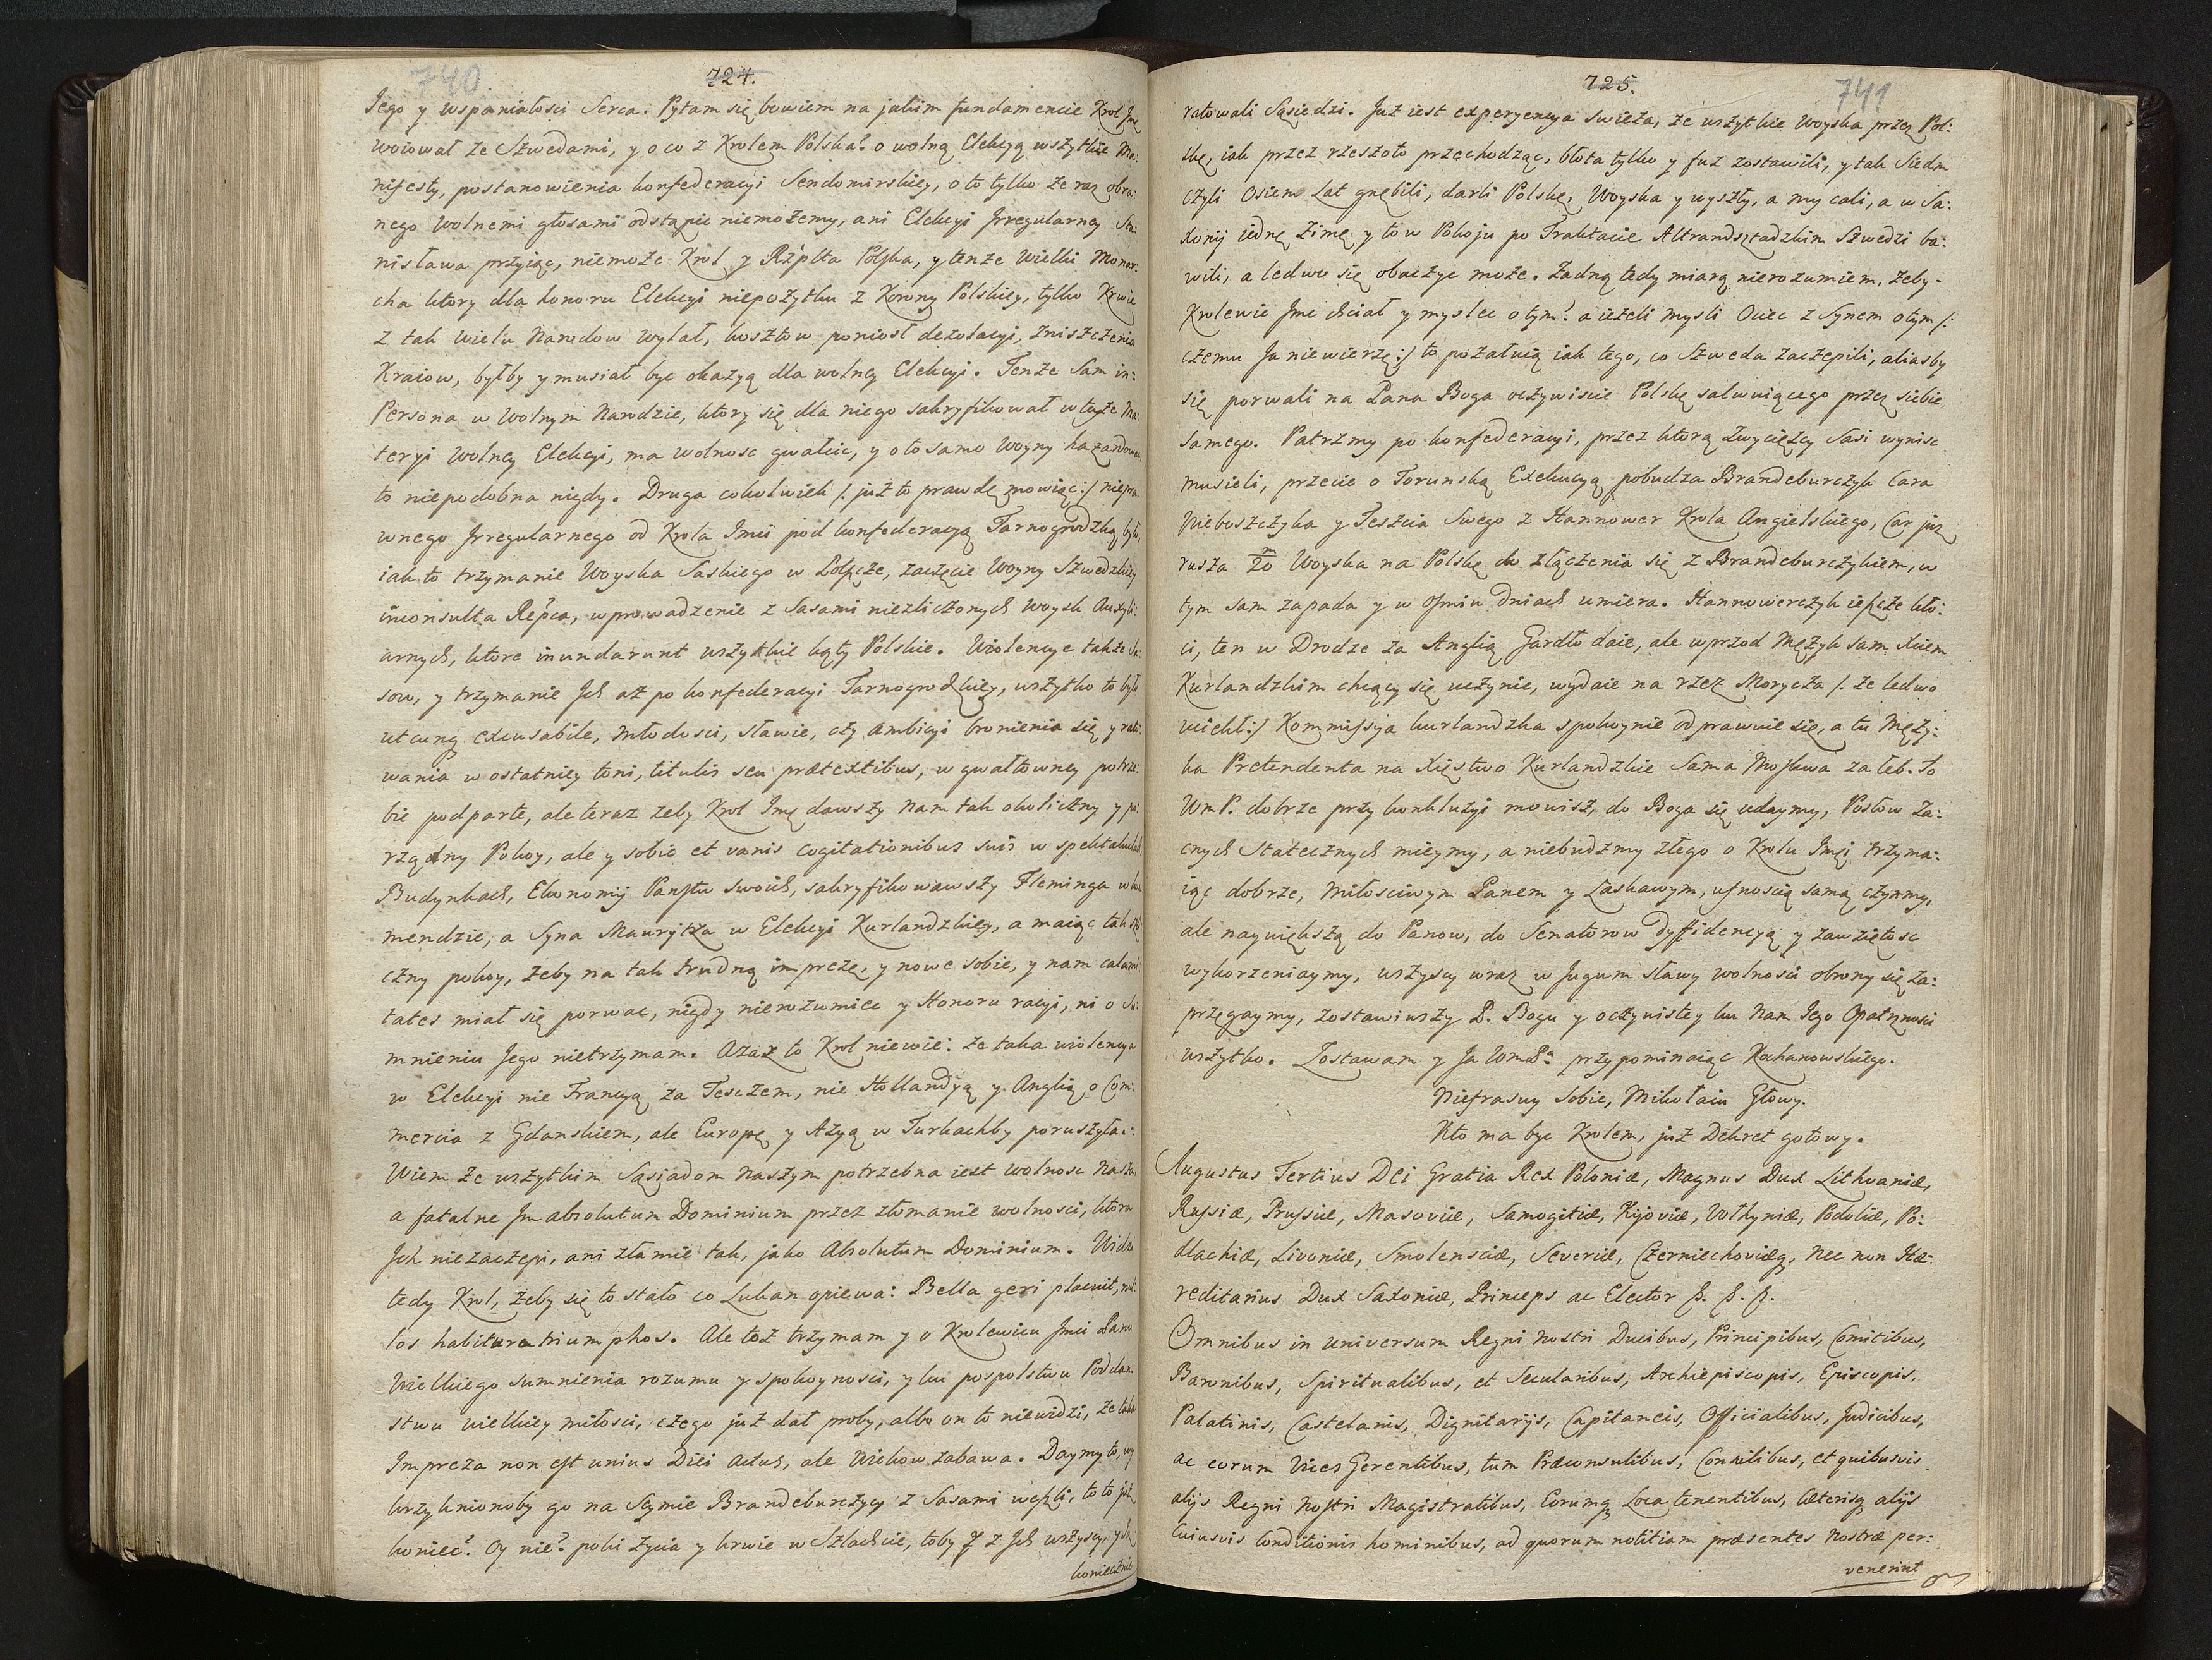 740
724.
Jego y wspaniałosci Serca. Pytam się bowiem na jakim fundamencie Krol Jmę
woiował ze Szwedami, y o co z Krolem Polska? o wolną Elekcyą wszytkie Ma:
nifesty, postanowienia konfederacyi Sendomirskiey, o to tylko że raz obra:
nego wolnemi głosami odstąpic niemożemy, ani Elekcyi Jrregularney Sta:
nisława przyiąc, niemoże Krol y Rzplta Polska, y tenże Wielki Monar:
cha ktory dla honoru Elekcyi niepożytku z Korony Polskiey, tylko Krwie
z tak wielu Narodow wylał, kosztow poniosł dezolacyi, zniszczenia
Kraiow, byłby y musiał byc okazyą dla wolney Elekcyi. Tenże Sam in:
Persona w wolnym Narodzie, ktory się dla niego sakryfikował w teyże Ma:
teryi wolney Elekcyi, ma wolnosc gwałcic, y o to samo Woyny
to niepodobna nigdy. Druga cokolwiek /: już to prawdę mowiąc :/ niepra:
wnego Jrregularnego od Krola Jmci pod konfederacyą Tarnogrodzką było,
iak to trzymanie Woyska Saskiego w Polszcze, zaczęcie Woyny Szwedzkiey
inconsulta Repca, wprowadzenie z Sasami niezliczonych woysk Auxyli:
arnych, ktore inundarunt wszytkie kąty Polskie. Wiolencye także Sa:
sow, y trzymanie Jch aż po konfederacyi Tarnogrodzkiey, wszytko to było
utcunq excusabile, młodosci, sławie, czy ambicyi bronienia się y rato:
wania w ostatniey toni, titulis seu prætextibus, w gwałtowney potrze:
bie podparte, ale teraz żeby Krol Jmę dawszy Nam tak okoliczny y po:
rządny Pokoy, ale y sobie et vanis cogitationibus suis w spektakulach
Budynkach, Ekonomij Panstw swoich, sakryfikowawszy Fleminga w ko:
mendzie, a Syna Maurytza w Elekcyi Kurlandzkiey, a maiąc tak
czny pokoy, żeby na tak trudną imprezę, y nowe sobie, y nam calami:
tates miał się porwac, nigdy nierozumiec y Honoru racyi, ni o Su:
mnieniu Jego nietrzymam. Azaż to Krol niewie: że taka wiolencya
w Elekcyi nie Francyą za Tesczem, nie Hollandyą y Anglią o Com:
mercia z Gdanskiem, ale Europę y Azyą w Turkachby poruszyła:
Wiem że wszytkim Sąsiadom Naszym potrzebna iest wolnosc Nasza,
a fatalne Jm absolutum Dominium przez złomanie wolnosci, ktora
Jch niezaczepi, ani złamie tak, jako Absolutum Dominium. Widzi
tedy Krol, żeby się to stało co Lukan opiewa: Bella geri placuit, nul:
los habitura triumphos. Ale toż trzymam y o Krolewicu Jmci Panu
Wielkiego sumnienia rozumu y spokoynosci, y ku pospolstwu Poddan:
stwu wielkiey miłosci, czego już dał proby, albo on to niewidzi, że taka
Jmpreza non est unius Diei actus, ale wiekow zabawa. Daymy to,
krzyknionoby go na Seymie Brandeburczycy z Sasami weszli, to to już
koniec? Oy nie? poki życia y krwie w Szlachcie, toby z Jch wszyscy,
koniecznie
725.
741
ratowali Sąsiedzi. Już iest experyencya swieża, że wszytkie Woyska przez Pol:
skę, iak przez rzeszoto przechodząc, błota tylko y fuz zostawili, y tak Siedm
czyli Osiem Lat gnębili, darli Polskę, Woyska y wyszły, a my cali, a w Sa:
xonij iednę zimę y to w Pokoju po Traktacie Altrandsztadzkim Szwedzi ba:
wili, a ledwo się obaczyc może. Żadną tedy miarą nierozumiem, żeby.
Krolewic Jmc chciał y myslec o tym? a ieżeli mysli Ociec z Synem o tym /:
czemu Ja niewierzę :/ to pożałuią iak tego, co Szweda zaczepili, aliasby
się porwali na Pana Boga oczywiscie Polskę salwuiącego przez siebie
samego. Patrzmy po konfederacyi, przez ktorą zwycięzcy Sasi wynisc
musieli, przecie o Torunską Exekucyą pobudza Brandeburczyk Cara
Nieboszczyka y Teszcia Swego z Hannower Krola Angielskiego, Car już
rusza Woyska na Polskę do złączenia się z Brandeburczykiem, w
tym sam zapada y w osmiu dniach umiera. Hannowerczyk ieszcze kło:
ci, ten w Drodze za Anglią Gardło daie, ale wprzod Mężyk sam Xciem
Kurlandzkim chcący się uczynic, wydaie na rzez Morycza /: że ledwo
uciekł :/ Kommissya kurlandzka spokoynie odprawuie się, a tu Męży:
ka Pretendenta na Xięstwo Kurlandzkie Sama Moskwa za łeb. To
WmP. dobrze przy konkluzyi mowisz, do Boga się udaymy, Posłow za:
cnych Statecznych mieymy, a niebudzmy złego o Krolu Jmci trzyma:
iąc dobrze, Miłosciwym Panem y Łaskawym, ufnoscią samą czynmy,
ale naywiększą do Panow, do Senatorow Dyffidencyą y zawziętosc
wykorzeniaymy, wszyscy wraz w Jugum sławy wolnosci obrony się za:
przęgaymy, zostawiwszy P. Bogu y oczywistey ku Nam Jego Opatrznosci
wszytko. Zostawam y Ja WmPa przypominaiąc Kochanowskiego.
Niefrasuy Sobie, Mikołaiu Głowy.
Kto ma byc Krolem, już Dekret gotowy.
Augustus Tertius Dei Gratia Rex Poloniæ, Magnus Dux Lithvaniæ,
Russiæ, Prussiæ, Masoviæ, Samogitiæ, Kijoviæ, Volhyniæ, Podoliæ, Po:
dlachiæ, Livoniæ, Smolensciæ, Severiæ, Czerniechoviæq, Nec non Hæ:
reditarius Dux Saxoniæ, Princeps ac Elector &. &. &.
Omnibus in universum Regni Nostri Ducibus, Principibus, Comitibus,
Baronibus, Spiritualibus, et Secularibus, Archiepiscopis, Episcopis,
Palatinis, Castelanis, Dignitarijs, Capitaneis, Officialibus, Judicibus,
ac eorum Vices Gerentibus, tum Præconsulibus, Consulibus, et quibusvis
alijs Regni Nostri Magistratibus, Eorumq Loca tenentibus, Cæterisq alijs
Cuiusvis Conditionis hominibus, ad quorum notitiam præsentes Nostræ per:
venerint